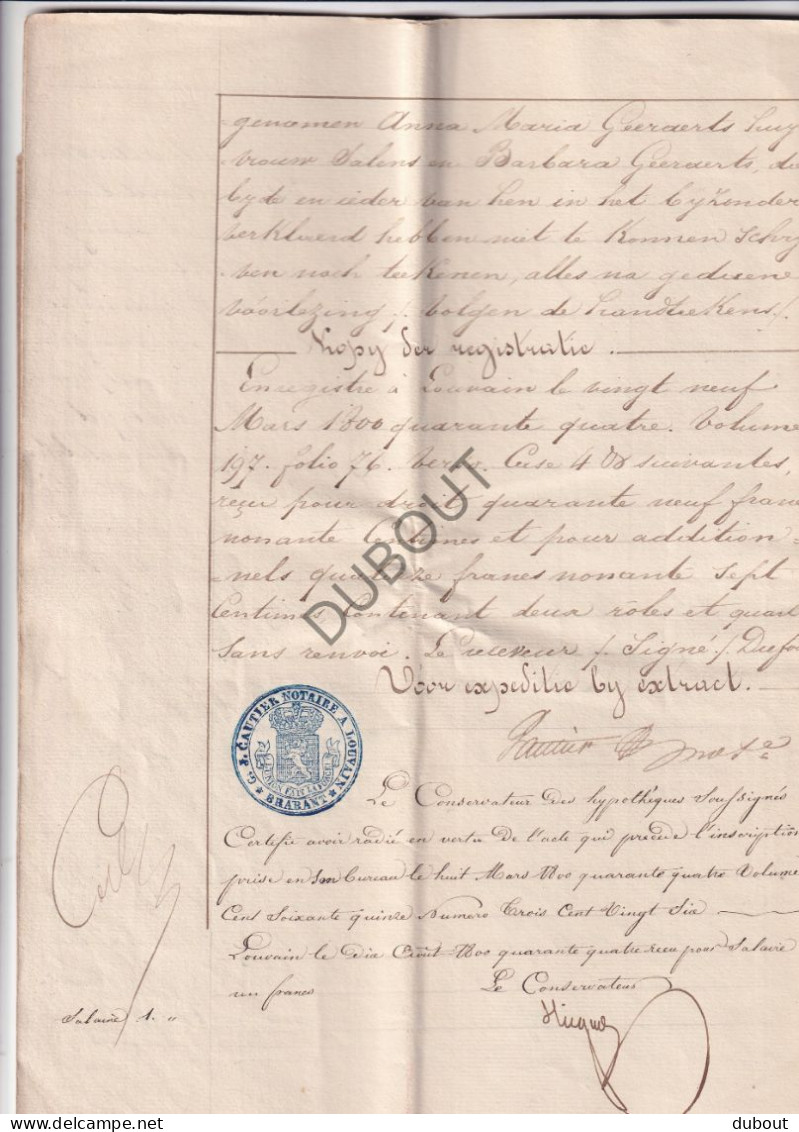 genomen Anna Maria Geeraerts huy
vrouw Salens en Barbara Geeraerts, di
byde en ieder van hen in het byzonder
verklaerd hebben niet te konnen schry
ven noch teekenen, alles na gedaene
voorlezing /. Volgen de handteekens /.
Kopy der registratie.
Enregistré à Louvain le vingt neuf
Mars 1800 quarante quatre. Volume
197. folio 76. Verso. Case 4 & suivantes,
reçu pour droit quarante neuf fran
nonante Centimes et pour addition=
nels quatorze francs nonante sept
Centimes Contenant deux rôles et
sans renvoi. Le receveur /. Signé /.
Vóór expeditie by extract.
Gautier
G. J. GAUTIER NOTAIRE A LOUVAIN
L'UNION FAIT LA FORCE
BRABANT
Le Conservateur des hypothèques Soussignés
Certifie avoir radié en vertu de l'acte qui précède l'inscription
prise en son bureau le huit Mars 1800 quarante quatre Volume
Cent Soixante quinze Numero Trois Cent Vingt Six
Louvain le Dix Août 1800 quarante quatre reçu pour Salaire
un francs
Le Conservateur
Salaire 1. "
DUBOUT
delcampe.net
dubout